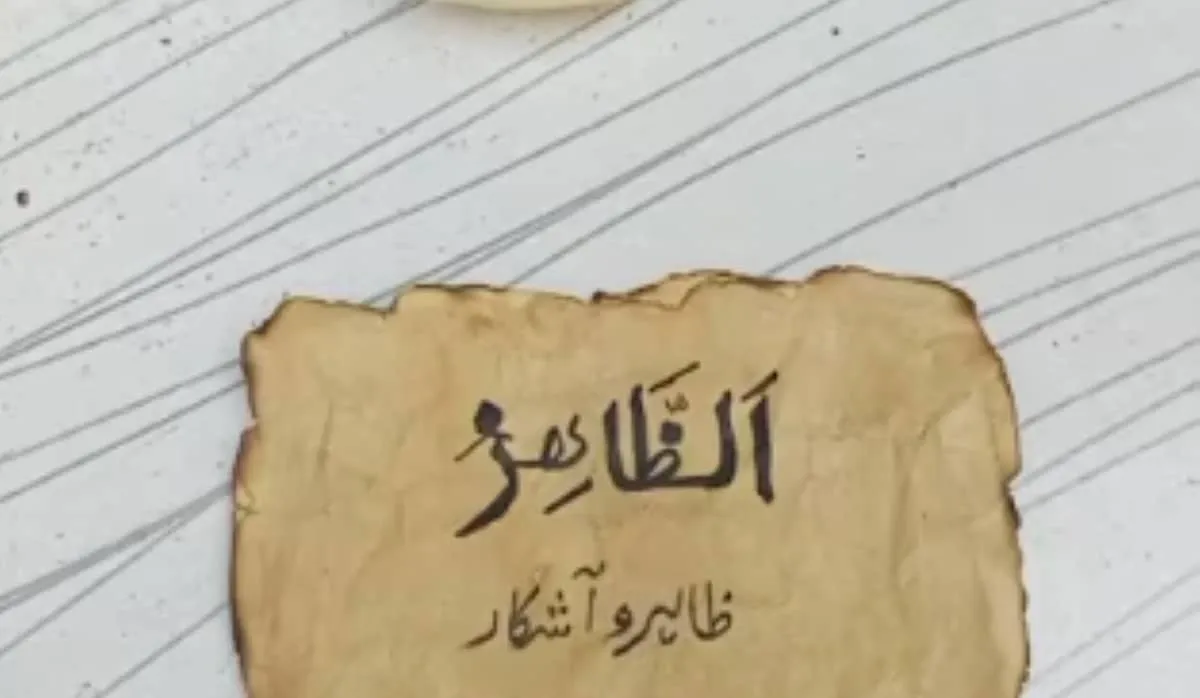 اَلظَّاهِرُ
ظاہر و آشکار